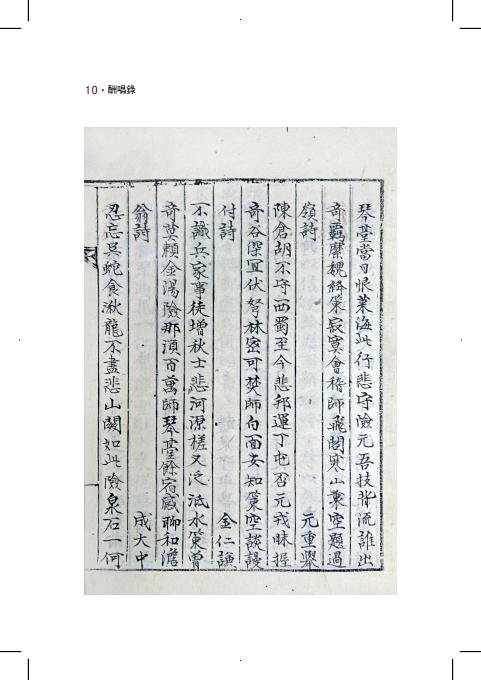 10 · 酬唱錄
琴臺當日恨菜海此行悲守險元吾技背流誰出
奇羈縻魏絳策寂寞會稽師飛閣寒山裏空題過
嶺詩 元重擧
陳倉胡不守西蜀至今悲邦運丁屯否元戎昧握
奇谷深宜伏弩林密可焚師白面安知策空談謾
付詩 金仁謙
不識兵家事徒增秋士悲河源槎又泛泜水策曾
奇莫賴金湯險那須百萬師琴臺餘宿感聊和澹
翁詩 成大中
忍忘吳蛇食湫龍不盡悲山關如此險泉石一何